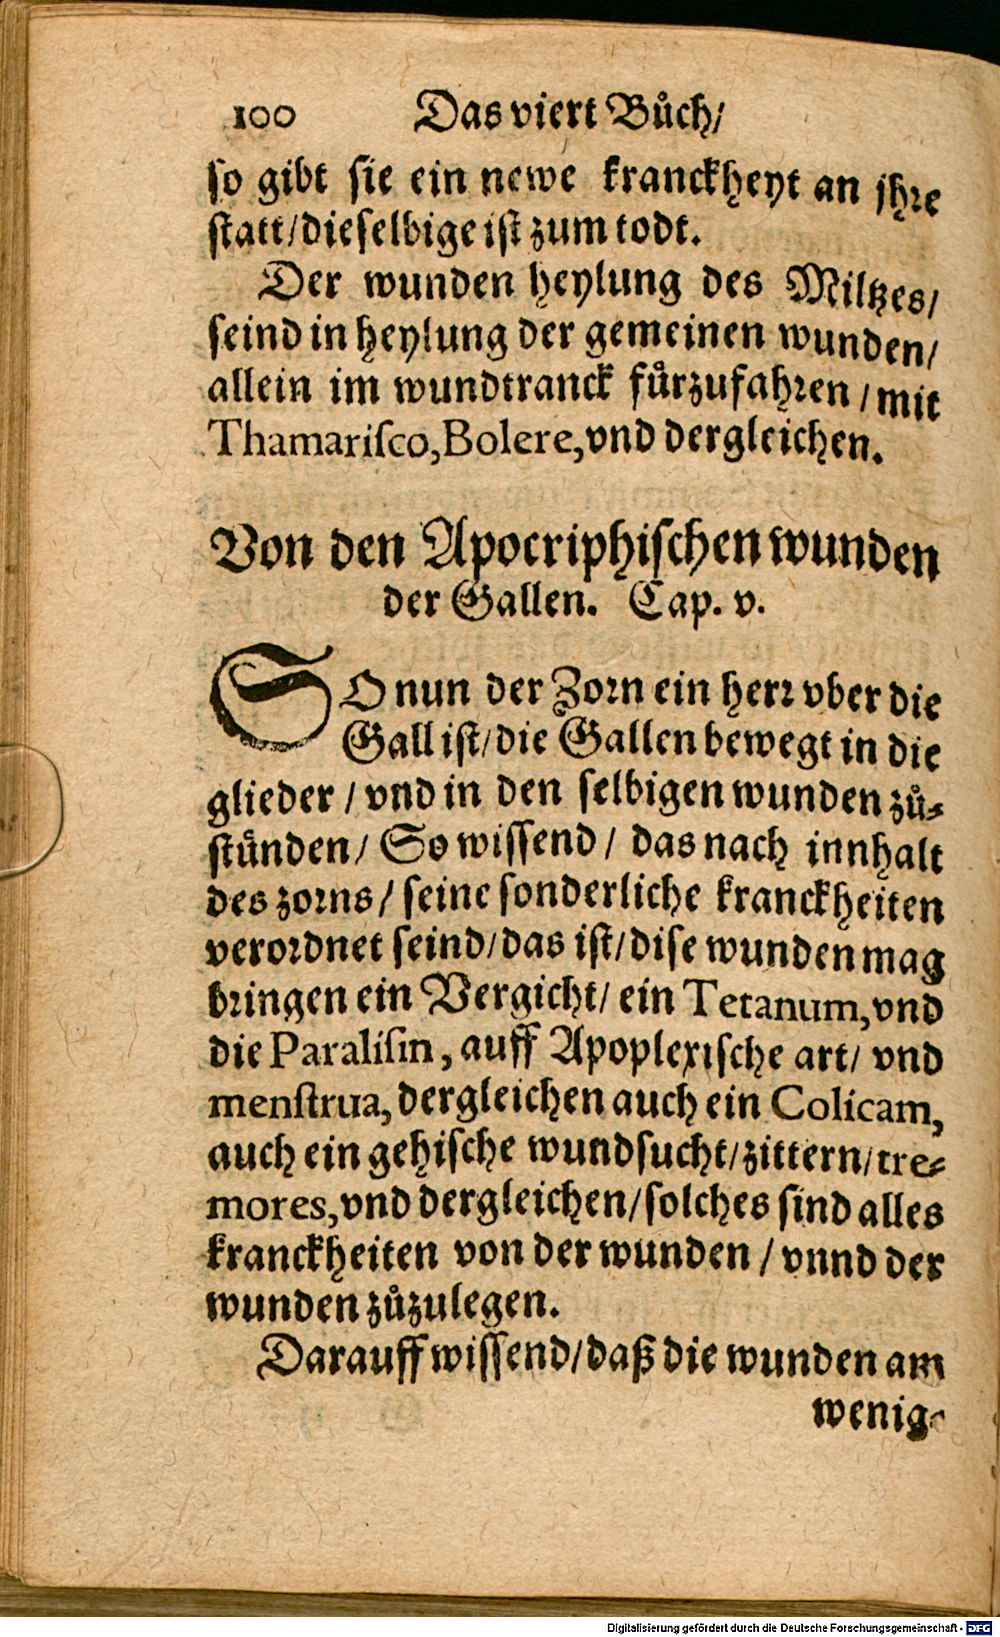 100 Das viert Bůch/
so gibt sie ein newe kranckheyt an jhre
statt/dieselbige ist zum todt.
Der wunden heylung des Miltzes/
seind in heylung der gemeinen wunden/
allein im wundtranck fürzufahren/mit
Thamariſco, Bolere, vnd dergleichen.
Von den Apocriphischen wunden
der Gallen. Cap. v.
SO nun der Zorn ein herr vber die
Gall ist/die Gallen bewegt in die
glieder/vnd in den selbigen wunden zů-
stünden/So wissend/das nach innhalt
des zorns/seine sonderliche kranckheiten
verordnet seind/das ist/dise wunden mag
bringen ein Vergicht/ein Tetanum, vnd
die Paraliſin, auff Apoplexische art/vnd
menſtrua, dergleichen auch ein Colicam,
auch ein gehische wundsucht/zittern/tre-
mores, vnd dergleichen/solches sind alles
kranckheiten von der wunden/vnnd der
wunden zůzulegen.
Darauff wissend/daß die wunden am
wenig-
Digitalisierung gefördert durch die Deutsche Forschungsgemeinschaft - DFG